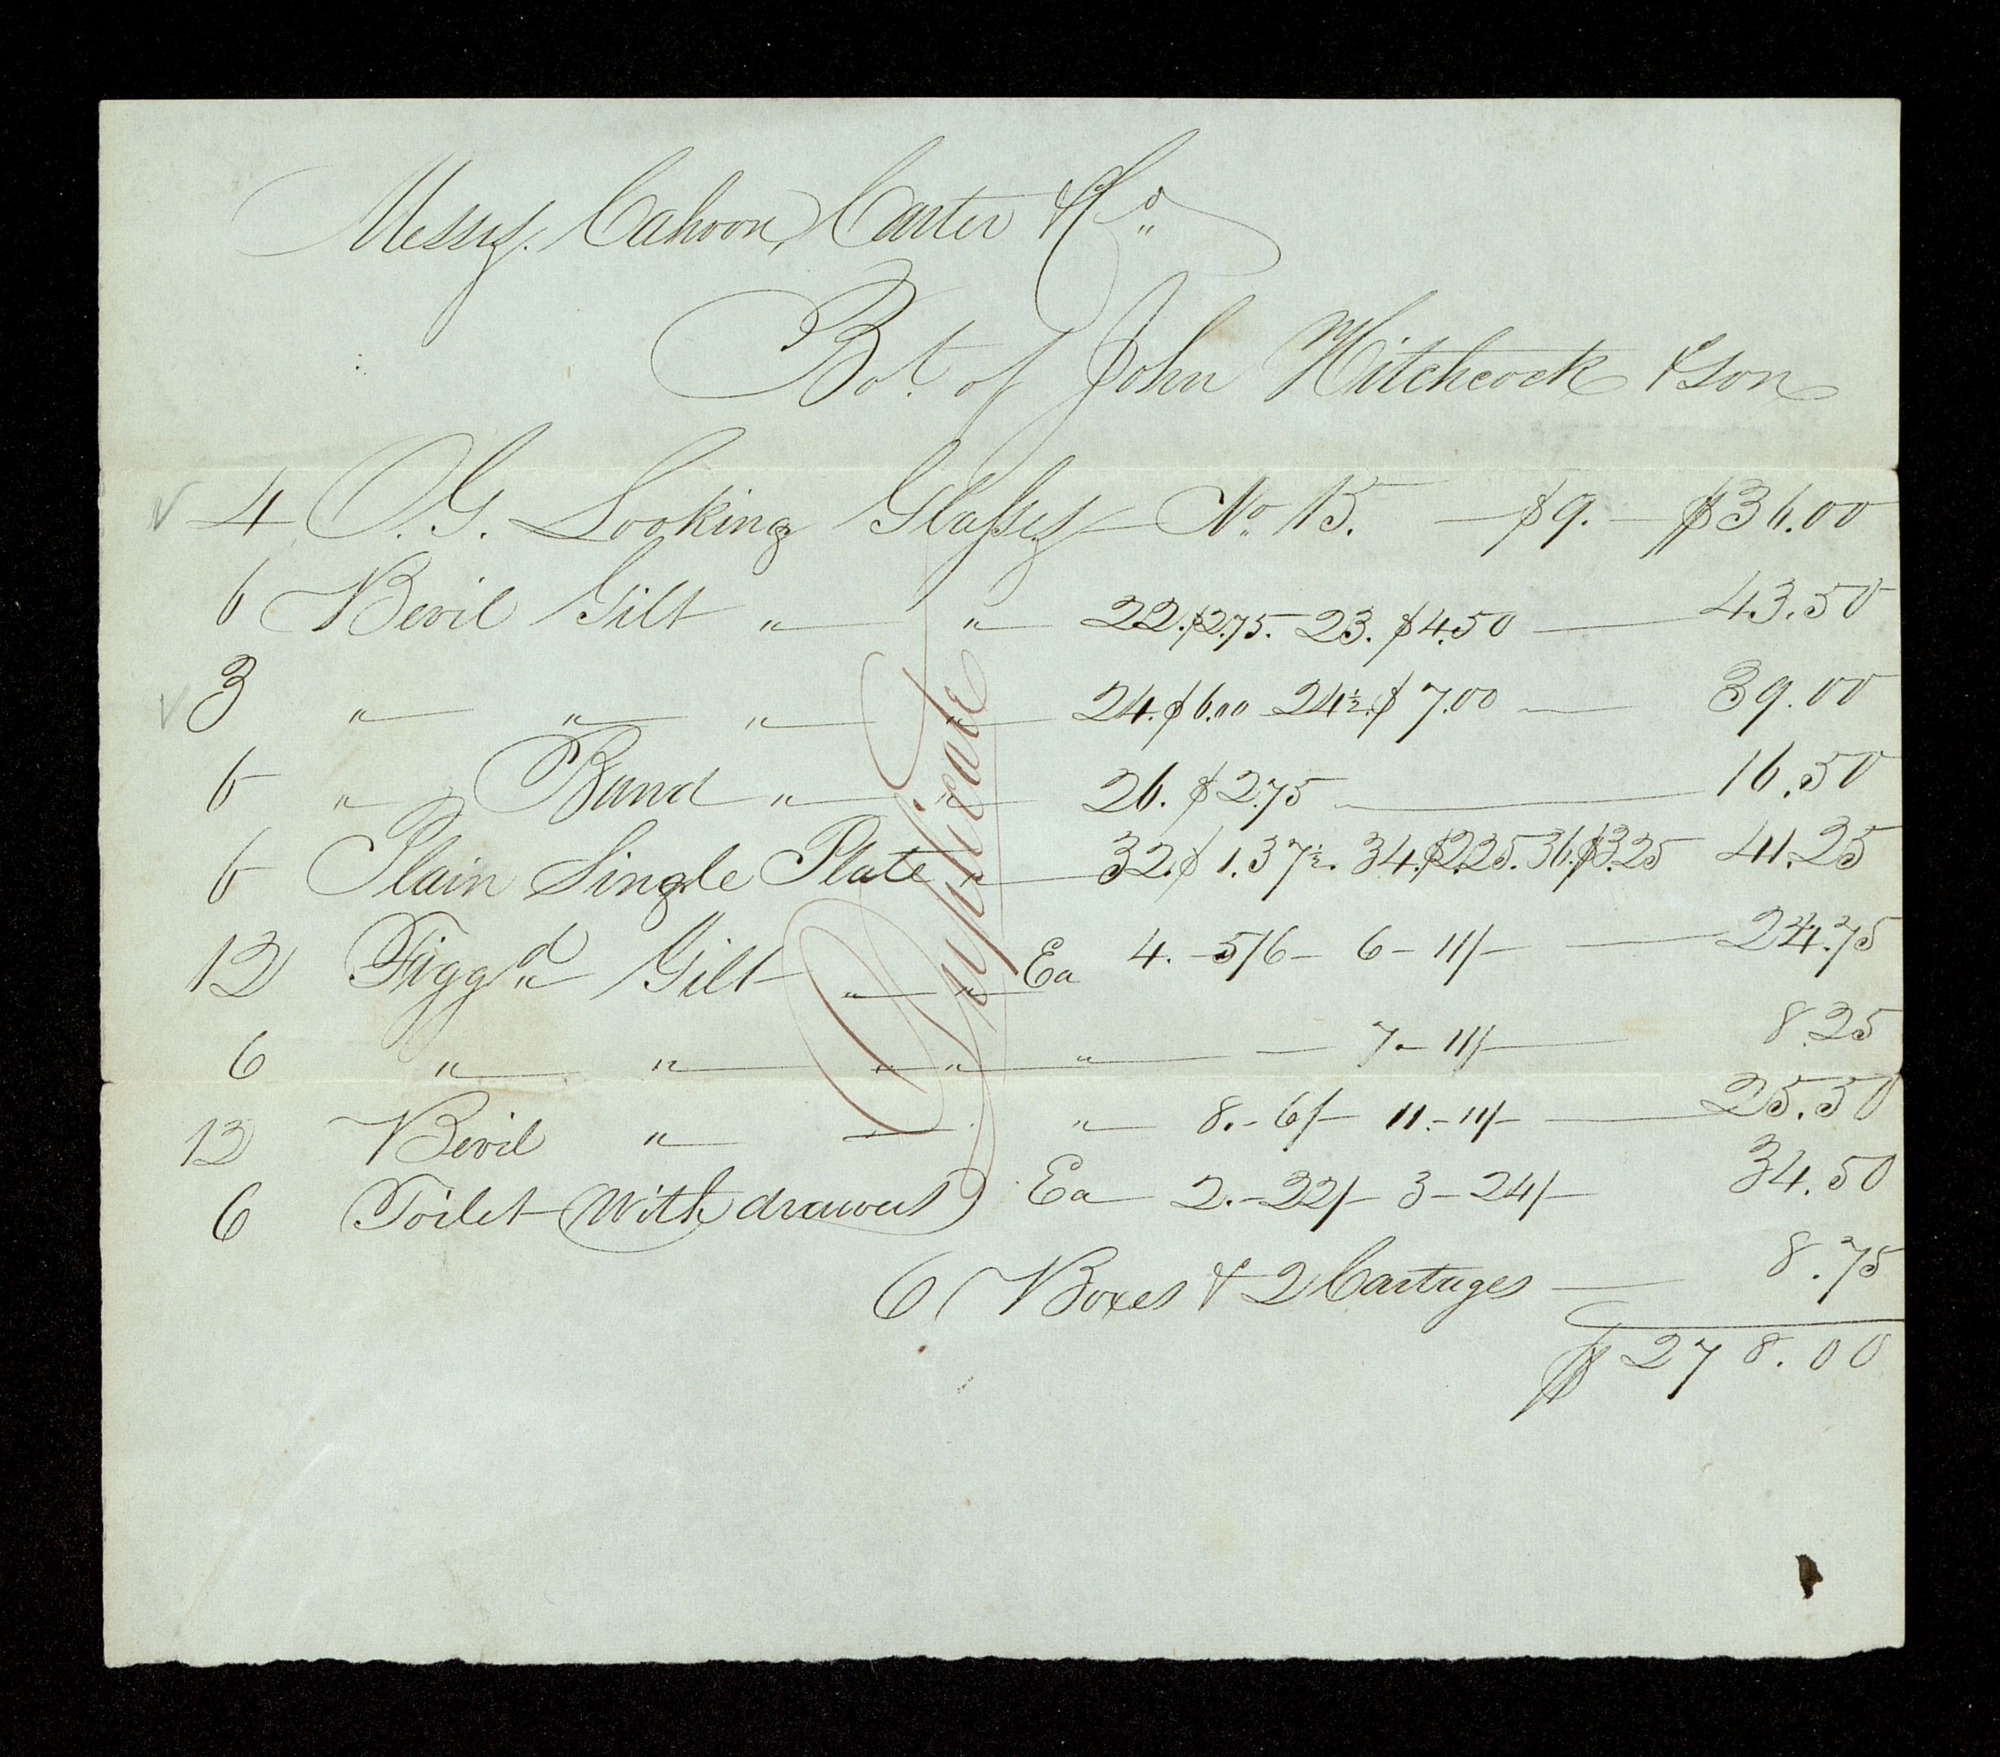 Messrs. Cahoon, Carter & Co.
Bot. of John Hitchcock & Son
4 O.G. Looking Glasses No 15. — $9. — $36.00
6 Bevil Gilt " " 22. $2.75. 23. $4.50 — 43.50
3 " " " " 24. $6.00 24½. $7.00 — 39.00
6 " Band " " 26. $2.75 — 16.50
6 Plain Single Plate " 32. $1.37½. 34. $2.25. 36. $3.25 41.25
12 Figgd Gilt " " Ea 4. - 5/6 - 6 - 11/- — 24.75
6 " " " " " — 7 - 11/- — 8.25
12 Bevil " — " 8. - 6/- 11. - 11/- — 25.50
6 Toilet With drawers Ea 2. - 22/- 3 - 24/- 34.50
6 Boxes & 2 Cartages — 8.75
$278.00
Duplicate